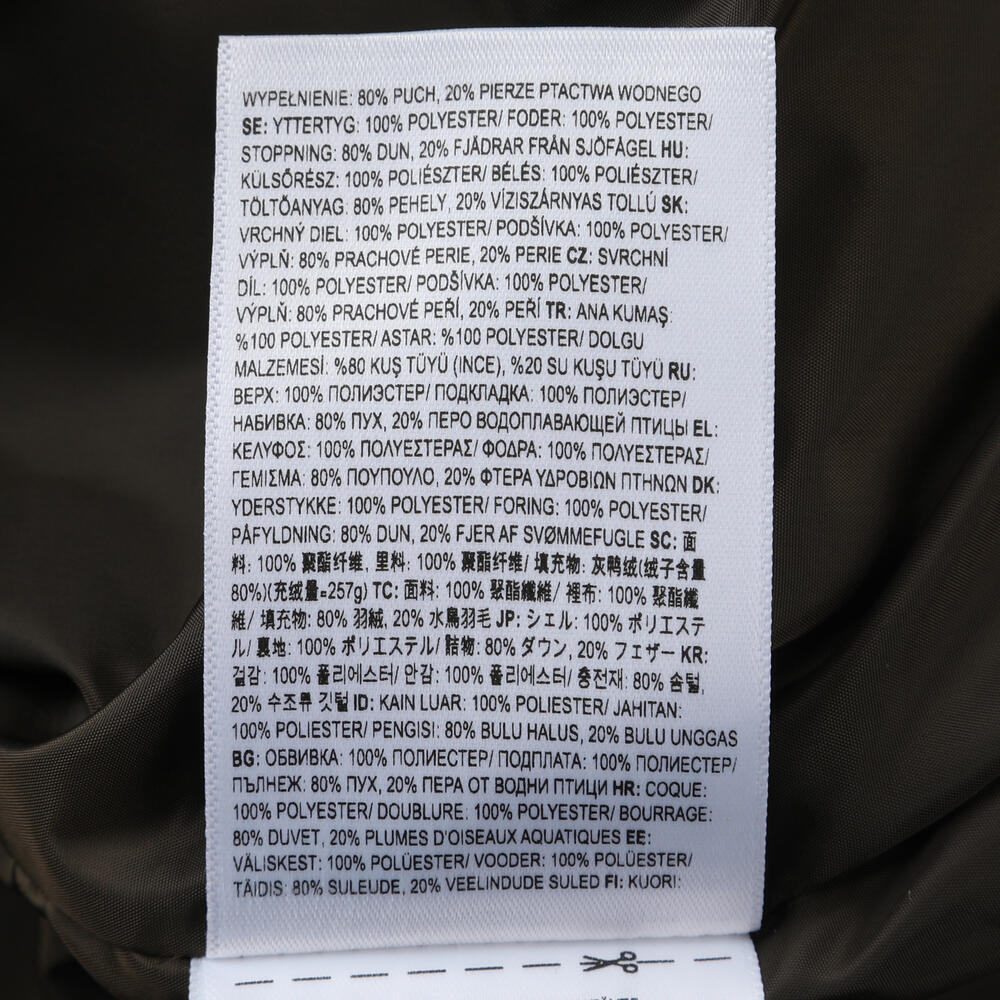 WYPEŁNIENIE: 80% PUCH, 20% PIERZE PTACTWA WODNEGO
SE: YTTERTYG: 100% POLYESTER/ FODER: 100% POLYESTER/
STOPPNING: 80% DUN, 20% FJÄDRAR FRÅN SJÖFÅGEL HU:
KÜLSŐRÉSZ: 100% POLIÉSZTER/ BÉLÉS: 100% POLIÉSZTER/
TÖLTŐANYAG: 80% PEHELY, 20% VÍZISZÁRNYAS TOLLÚ SK:
VRCHNÝ DIEL: 100% POLYESTER/ PODŠÍVKA: 100% POLYESTER/
VÝPLŇ: 80% PRACHOVÉ PERIE, 20% PERIE CZ: SVRCHNÍ
DÍL: 100% POLYESTER/ PODŠÍVKA: 100% POLYESTER/
VÝPLŇ: 80% PRACHOVÉ PEŘÍ, 20% PEŘÍ TR: ANA KUMAŞ:
%100 POLYESTER/ ASTAR: %100 POLYESTER/ DOLGU
MALZEMESİ: %80 KUŞ TÜYÜ (INCE), %20 SU KUŞU TÜYÜ RU:
ВЕРХ: 100% ПОЛИЭСТЕР/ ПОДКЛАДКА: 100% ПОЛИЭСТЕР/
НАБИВКА: 80% ПУХ, 20% ПЕРО ВОДОПЛАВАЮЩЕЙ ПТИЦЫ EL:
ΚΕΛΥΦΟΣ: 100% ΠΟΛΥΕΣΤΕΡΑΣ/ ΦΟΔΡΑ: 100% ΠΟΛΥΕΣΤΕΡΑΣ/
ΓΕΜΙΣΜΑ: 80% ΠΟΥΠΟΥΛΟ, 20% ΦΤΕΡΑ ΥΔΡΟΒΙΩΝ ΠΤΗΝΩΝ DK:
YDERSTYKKE: 100% POLYESTER/ FORING: 100% POLYESTER/
PÅFYLDNING: 80% DUN, 20% FJER AF SVØMMEFUGLE SC: 面
料: 100% 聚酯纤维, 里料: 100% 聚酯纤维/ 填充物: 灰鸭绒(绒子含量
80%)(充绒量=257g) TC: 面料: 100% 聚酯纖維/ 裡布: 100% 聚酯纖
維/ 填充物: 80% 羽絨, 20% 水鳥羽毛 JP: シェル: 100% ポリエステ
ル/ 裏地: 100% ポリエステル/ 詰物: 80% ダウン, 20% フェザー KR:
겉감: 100% 폴리에스터/ 안감: 100% 폴리에스터/ 충전재: 80% 솜털,
20% 수조류 깃털 ID: KAIN LUAR: 100% POLIESTER/ JAHITAN:
100% POLIESTER/ PENGISI: 80% BULU HALUS, 20% BULU UNGGAS
BG: ОБВИВКА: 100% ПОЛИЕСТЕР/ ПОДПЛАТА: 100% ПОЛИЕСТЕР/
ПЪЛНЕЖ: 80% ПУХ, 20% ПЕРА ОТ ВОДНИ ПТИЦИ HR: COQUE:
100% POLYESTER/ DOUBLURE: 100% POLYESTER/ BOURRAGE:
80% DUVET, 20% PLUMES D'OISEAUX AQUATIQUES EE:
VÄLISKEST: 100% POLÜESTER/ VOODER: 100% POLÜESTER/
TÄIDIS: 80% SULEUDE, 20% VEELINDUDE SULED FI: KUORI: